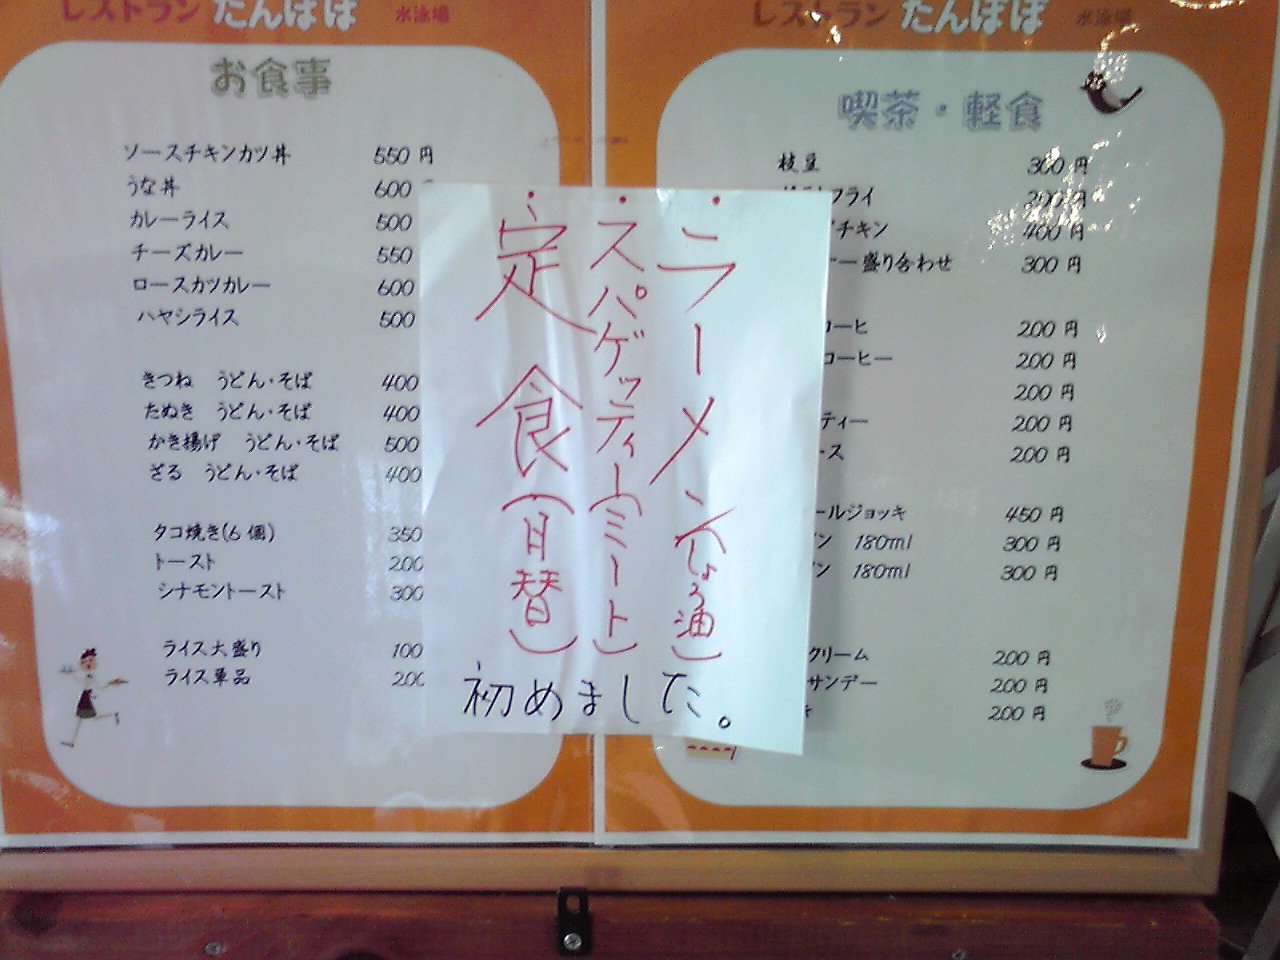 レストラン たんぽぽ 水泳場
お食事
ソースチキンカツ丼 550 円
うな丼 600
カレーライス 500
チーズカレー 550
ロースカツカレー 600
ハヤシライス 500
きつね うどん・そば 400
たぬき うどん・そば 400
かき揚げ うどん・そば 500
ざる うどん・そば 400
タコ焼き(6個) 350
トースト 200
シナモントースト 300
ライス大盛り 100
ライス単品 200
・ラーメン(しょう油)
・スパゲッティー(ミート)
・定食(日替)
初めました。
レストラン たんぽぽ 水泳場
喫茶・軽食
枝豆 300 円
フライ 200 円
チキン 400 円
ー盛り合わせ 300 円
コーヒ 200 円
コーヒー 200 円
200 円
ティー 200 円
ース 200 円
ールジョッキ 450 円
ン 180ml 300 円
ン 180ml 300 円
クリーム 200 円
サンデー 200 円
キ 200 円